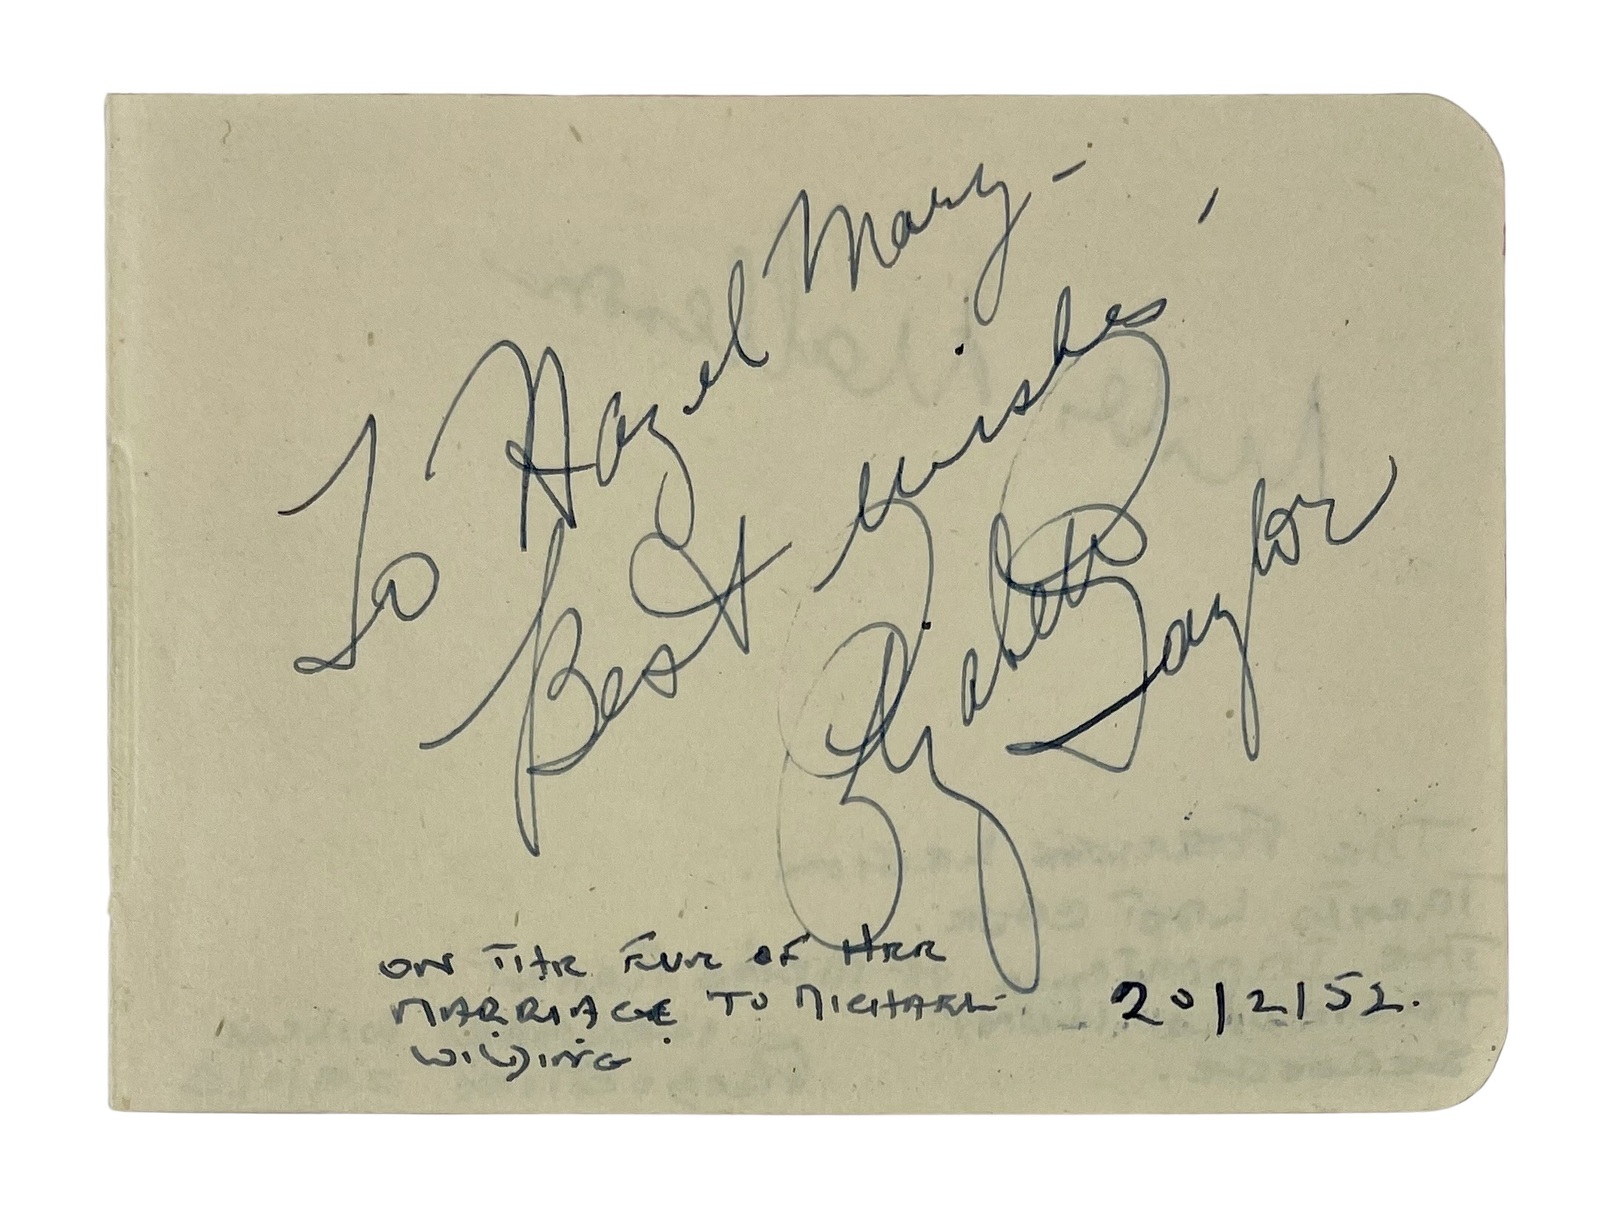 To Hazel Mary –
Best Wishes,
Elizabeth
Taylor
ON THE EVE OF HER
MARRIAGE TO MICHAEL
WILDING
20/2/52.